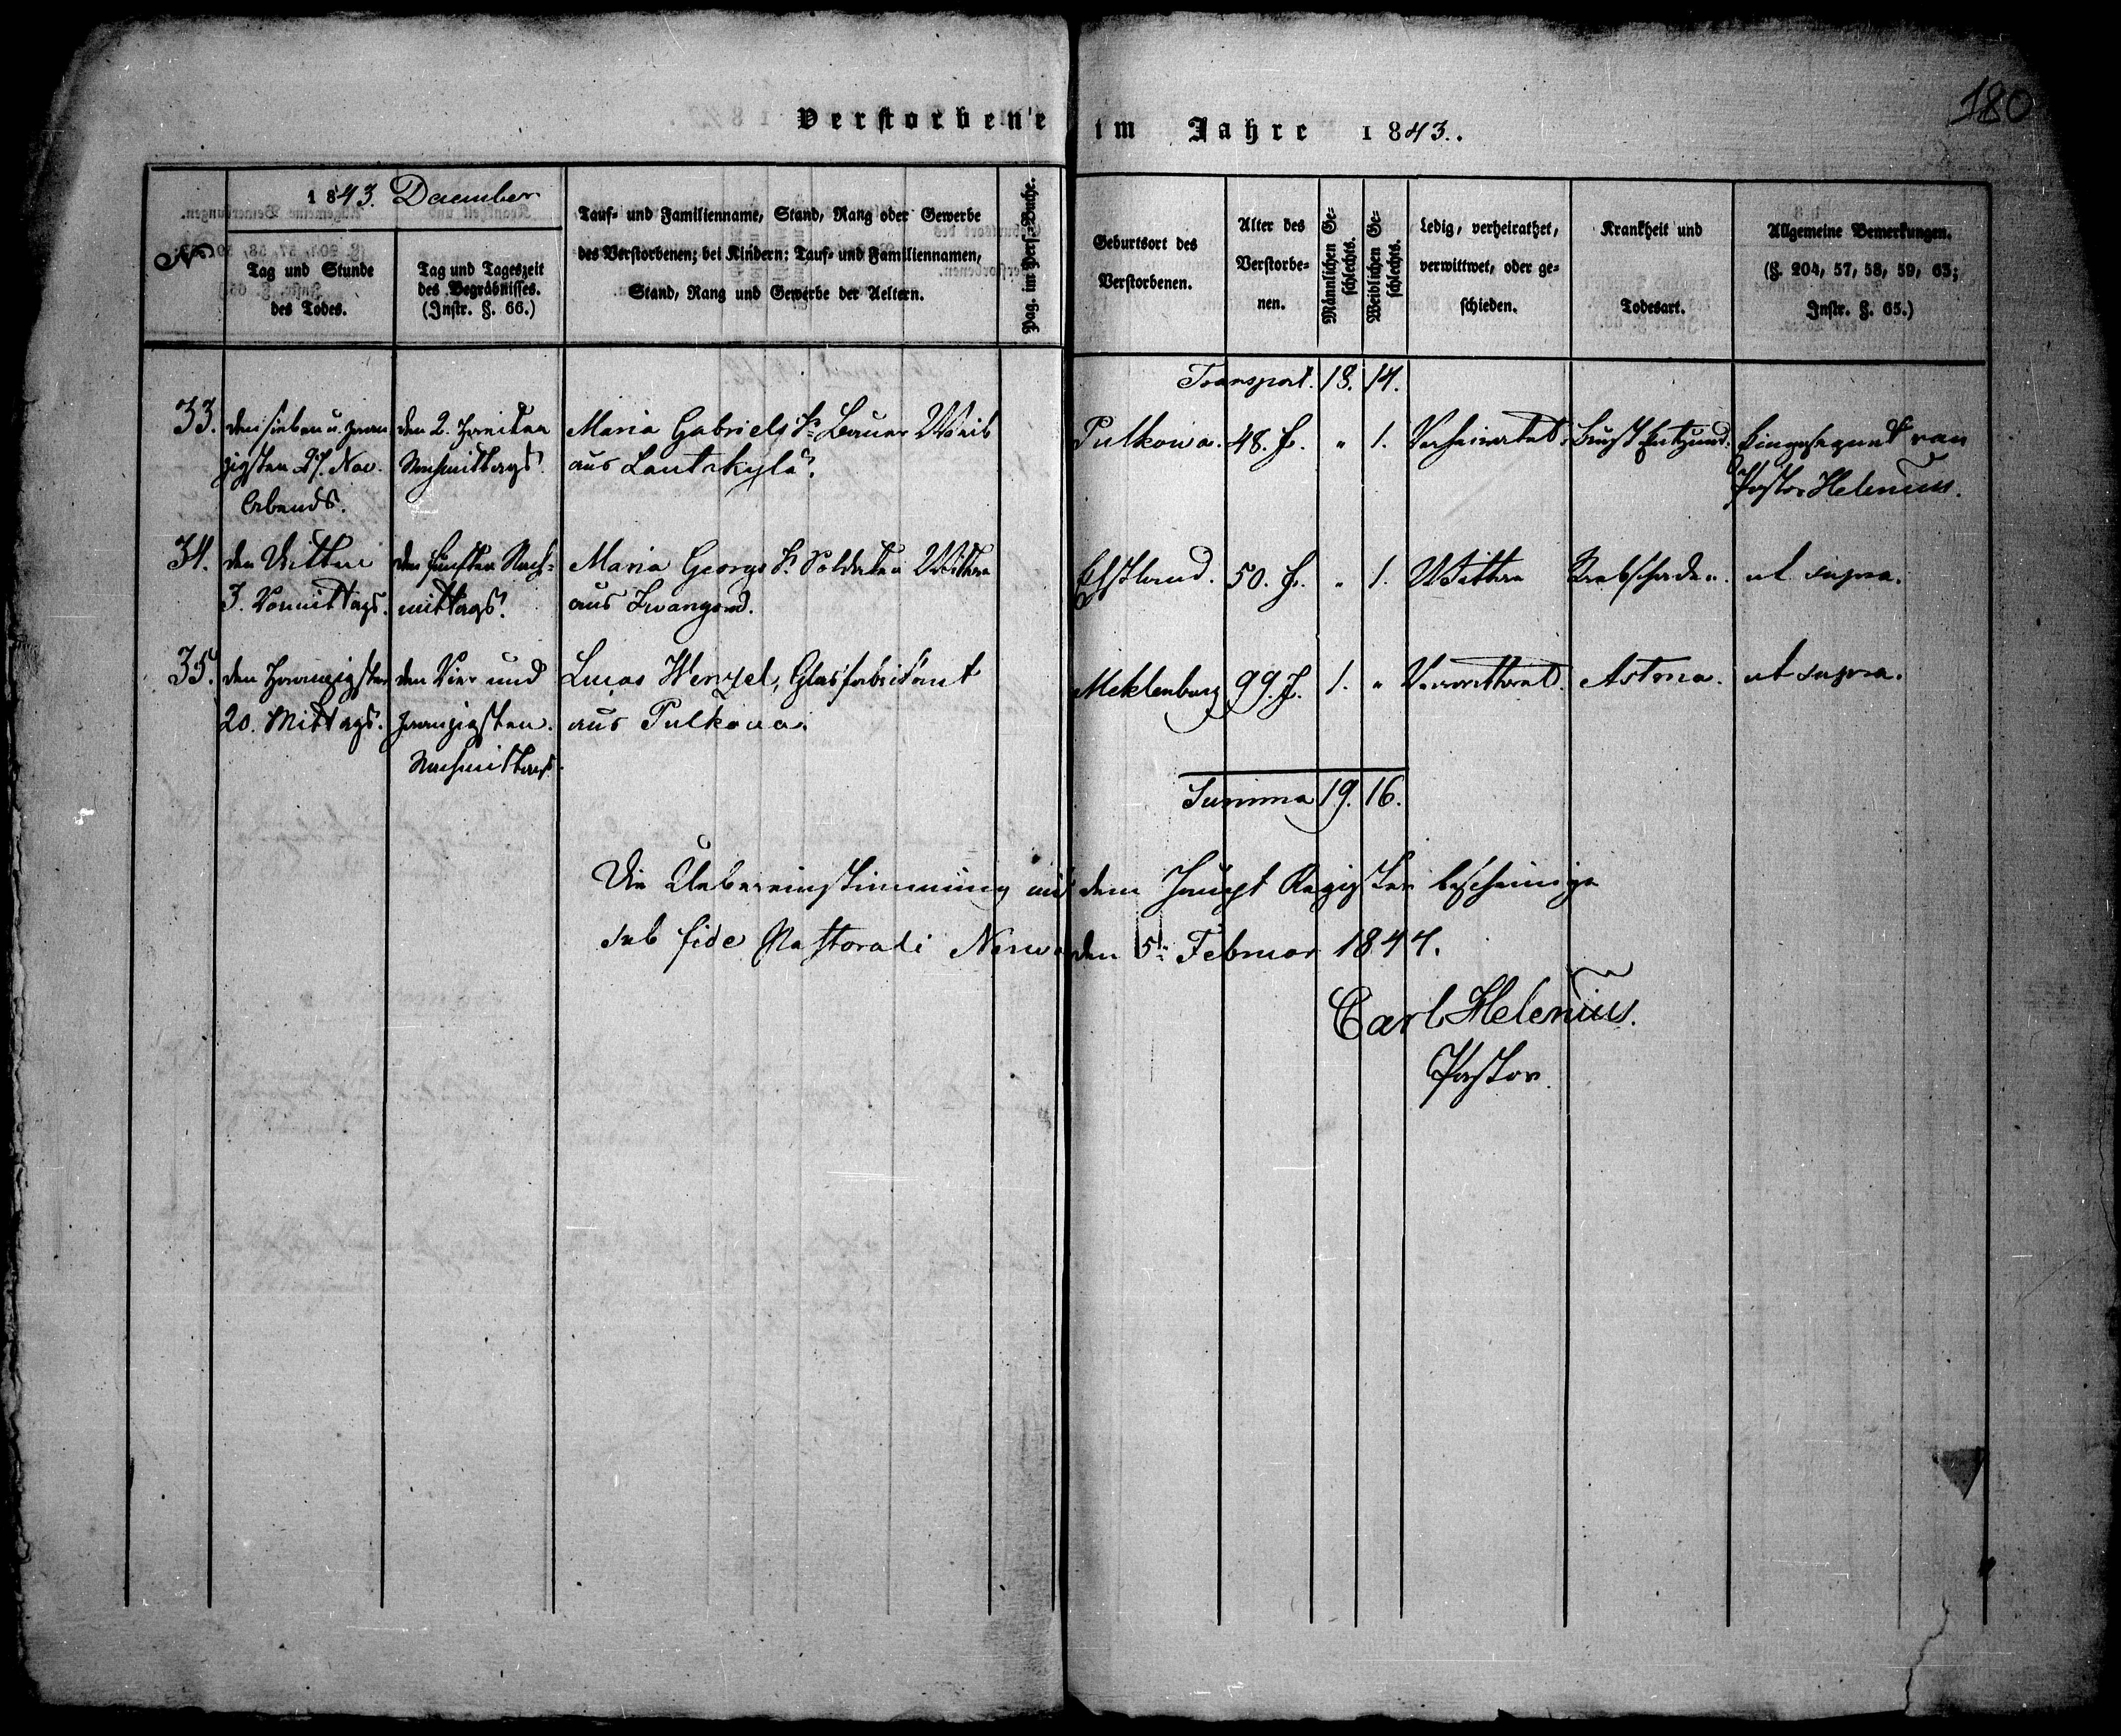 180
Verstorbene im Jahre 1843.
№
1843. December
Tag und Stunde
des Todes.
Tag und Tageszeit
des Begräbnisses.
(Instr. §. 66.)
Tauf- und Familienname, Stand, Rang oder Gewerbe
des Verstorbenen; bei Kindern: Tauf- und Familiennamen,
Stand, Rang und Gewerbe der Aeltern.
Pag. im Pers.-Buche.
Geburtsort des
Verstorbenen.
Alter des
Verstorbe-
nen.
Männlichen Ge-
schlechts.
Weiblichen Ge-
schlechts.
Ledig, verheirathet,
verwittwet, oder ge-
schieden.
Krankheit und
Todesart.
Allgemeine Bemerkungen.
(§. 204, 57, 58, 59, 63;
Instr. §. 65.)
Transport. 18. 14.
33.
den sieben u. zwan
zigsten 27. Nov.
Abends.
den 2. Zweiten
Nachmittags.
Maria Gabriels Tr Bauer Weib
aus Lautakylä.
Pulkowa.
48. J.
"
1.
Verheiratet.
Brust Entzünd.
Eingesegnet von
Pastor Helenius.
34.
den Dritten
3. Vormittags.
den fünften Nach-
mittags.
Maria Georgs Tr Soldaten Wittwe
aus Iwangorod.
Ehstland.
50. J.
"
1.
Wittwe
ut supra.
35.
den Zwanzigsten
20. Mittags.
den Vier und
zwanzigsten.
Nachmittags.
Lucas Wenzel, Glasfabrikant
aus Pulkowa.
Meklenburg
99. J.
1.
"
Verwittwet.
Astma.
ut supra.
Summa 19. 16.
Die Uebereinstimmung mit dem Haupt Register bescheinige
sub fide Pastorali Narwa den 5. Februar 1844.
Carl Helenius.
Pastor.